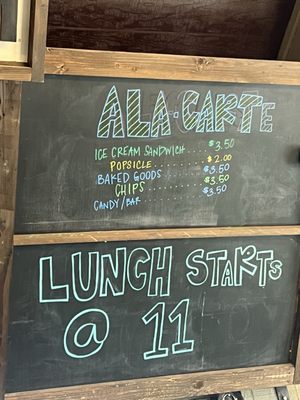 ALA-CARTE
ICE CREAM SANDWICH . . . . $3.50
POPSICLE . . . . . . . . $2.00
BAKED GOODS . . . . . . . $3.50
CHIPS . . . . . . . . . . $3.50
CANDY/BAR . . . . . . . . $3.50
LUNCH STARTS
@ 11